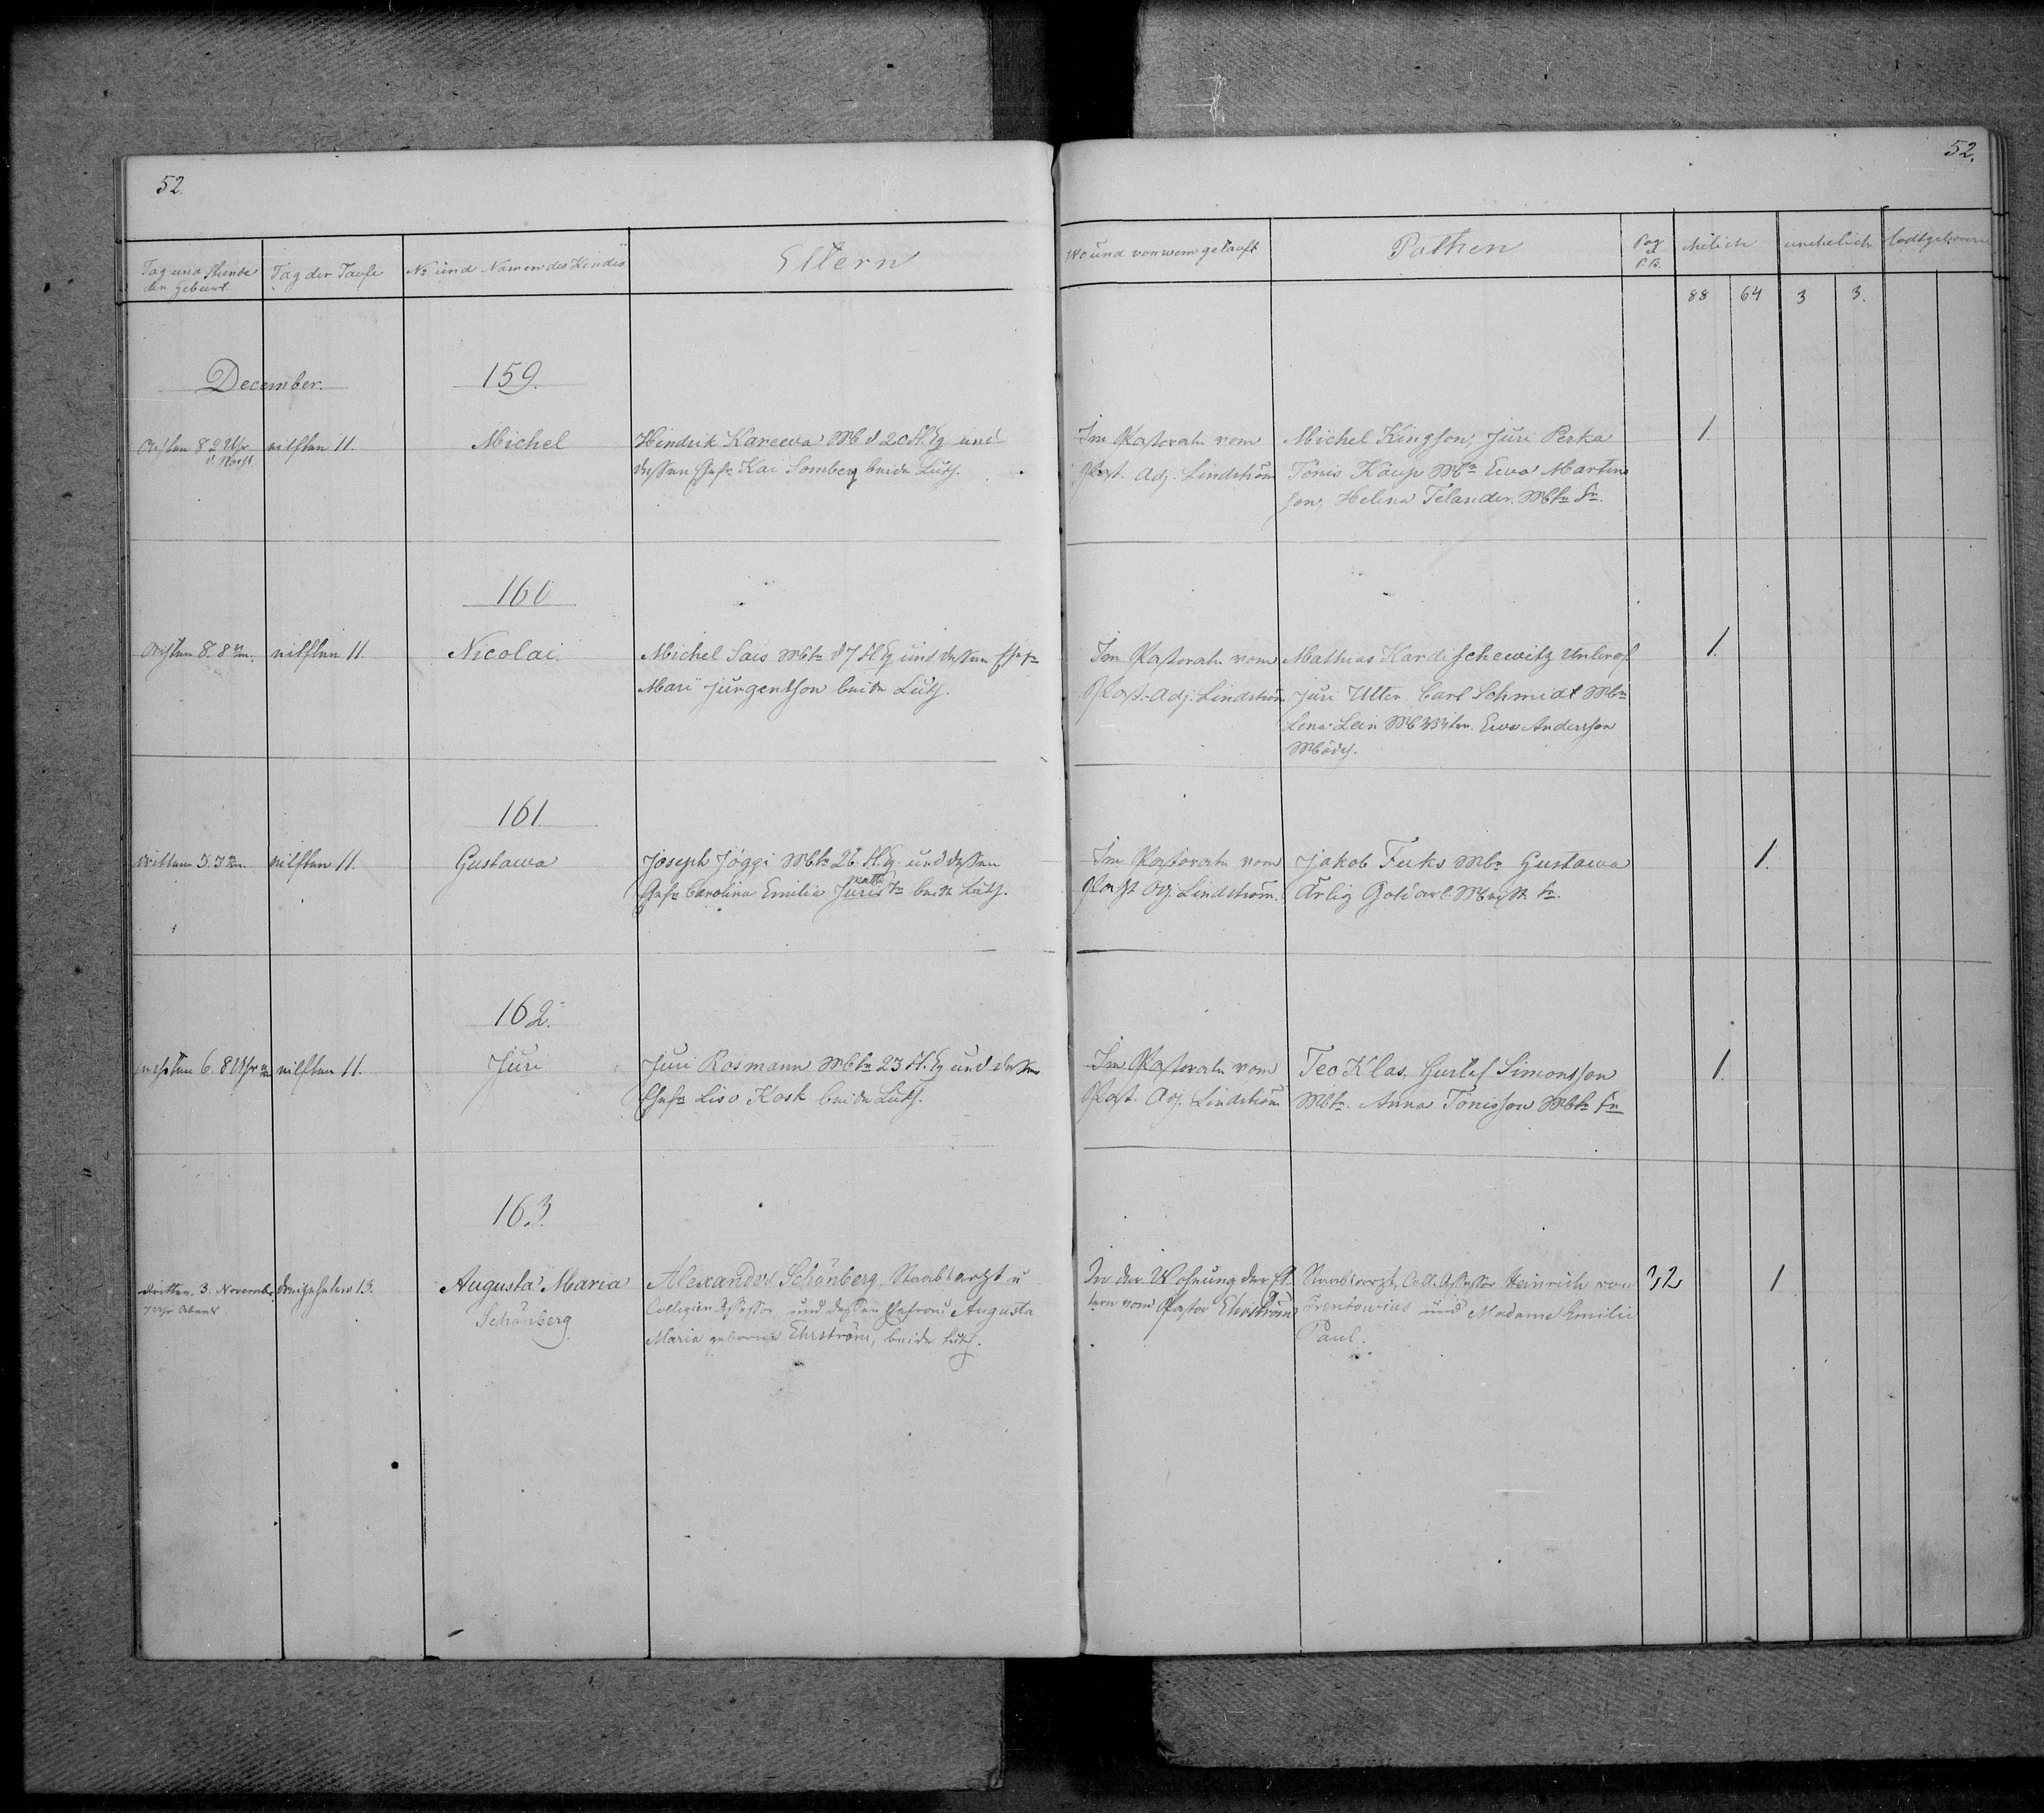 52.
52.
Tag und Stunde
der Geburt.
Tag der Taufe
No und Namen des Kindes
Eltern
Wo und von wem getauft
Pathen
Pag
d.
P.B.
ehelich
unehelich
todtgeboren
88 64 3 3.
December.
159.
Achten 8 2 Uhr
d. Nacht
eilften 11.
Michel
Hindrik Karewa Mb d 20 Fl. Eq und
dessen Ehefr Kai Somberg beide Luth.
Im Pastorate vom
Past. Adj. Lindström
Michel Kingson, Juri Perka
Tönis Kaup Mbr Ewa Martin
son, Helena Telander. Mbtr Fr.
1.
160
Achten 8. 8
eilften 11.
Nicolai.
Michel Sais Mbtr d 7 Fl. Eq und dessen
Mari Jurgentson beide Luth.
Im Pastorate vom
Past. Adj. Lindström
Mathias Kardischewitz Unterof
Juri Ulter, Carl Schmidt Mbr
Lena Lein Ewa Andersson
1.
161
dritten 3.
eilften 11.
Gustawa
Joseph Jöggi Mbtr 26. Fl. Eq. und dessen
Ehefr Carolina Emilia Juris beide Luth.
Im Pastorate vom
Past Adj. Lindström.
Jakob Fuks Mbr Gustawa
Ärlig
1.
162.
sechsten 6. 8 Uhr
eilften 11.
Juri
Juri Rosmann Mbtr 23 Fl. Eq und dessen
Ehefr Liso Kosk beide Luth.
Im Pastorate vom
Past. Adj. Lindström
Teo Klas, Gustaf Simonsson
Mbtr. Anna Tönisson Mbtr Fr
1.
163.
dritten, 3. November
7 Uhr Abends
dreizehnten 13.
Augusta Maria
Schönberg
Alexander Schönberg Staabsarzt u
Collegien Assessor, und dessen Ehefrau Augusta
Maria geborne Ehrström, beide Luth.
In der Wohnung der El
tern vom Pastor Ehrström
Staabsarzt, Coll. Assessor Heinrich von
Trentowius und Madame Emilie
Paul.
32
1